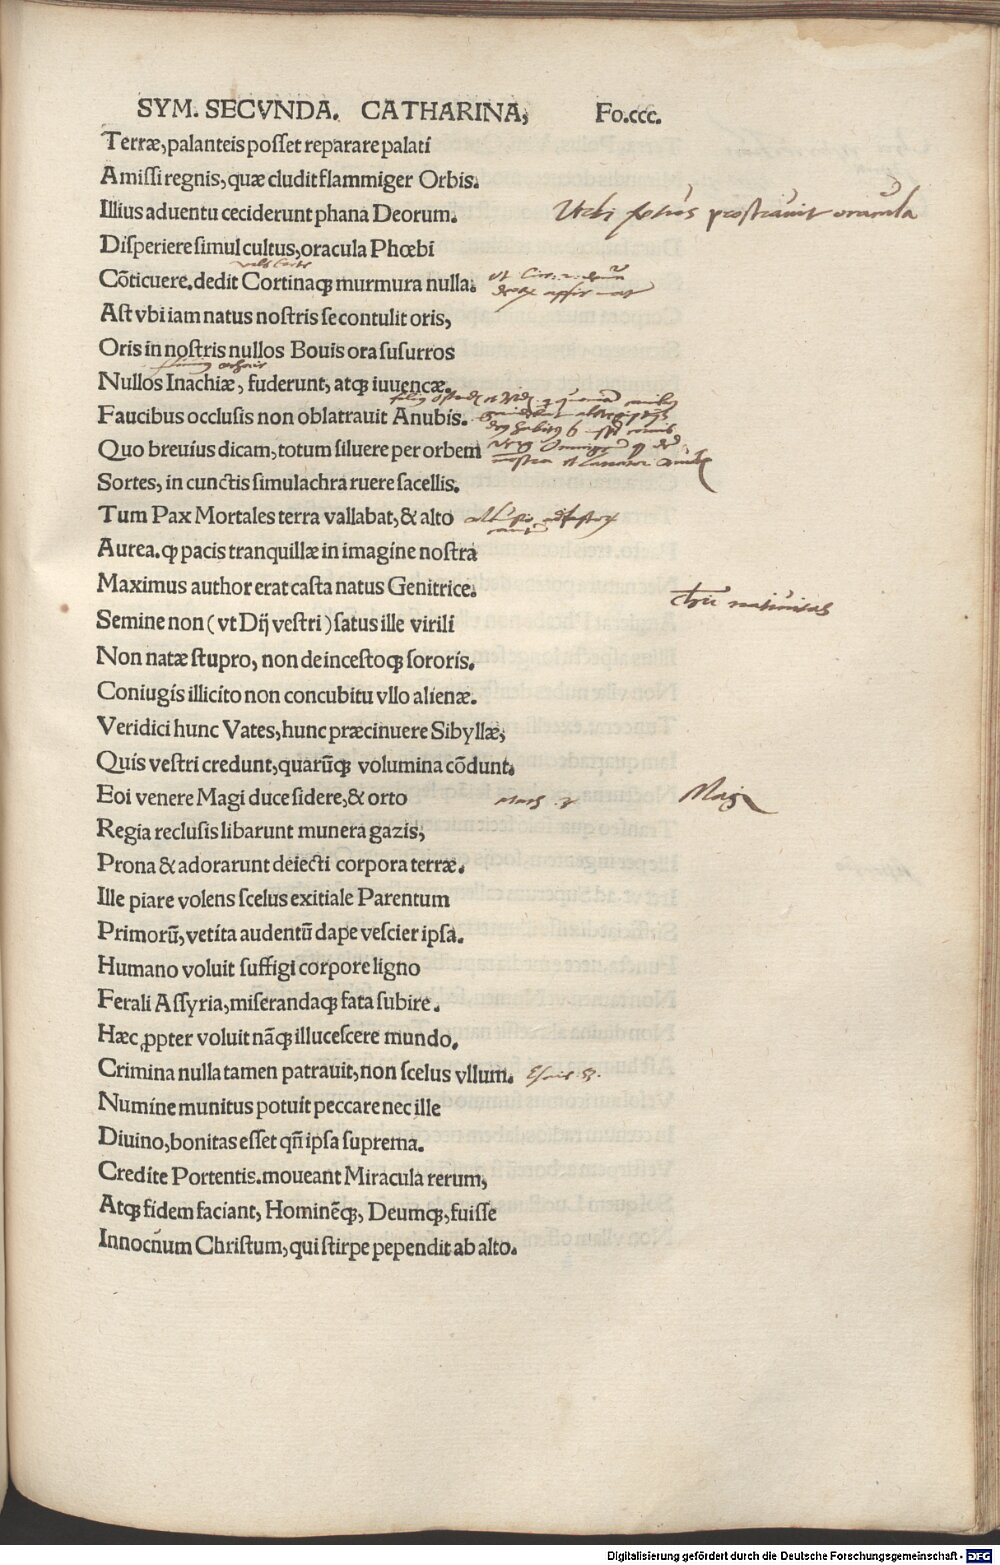 SYM. SECVNDA. CATHARINA, Fo.ccc.
Terræ, palanteis posset reparare palati
Amissi regnis, quæ cludit flammiger Orbis.
Illius aduentu ceciderunt phana Deorum.
prostrauit oracula
Disperiere simul cultus, oracula Phœbi
Cōticuere. dedit Cortinaqꝫ murmura nulla.
Ast vbi iam natus nostris se contulit oris,
Oris in nostris nullos Bouis ora susurros
Nullos Inachiæ, fuderunt, atqꝫ iuuencæ.
Faucibus occlusis non oblatrauit Anubis.
Quo breuius dicam, totum siluere per orbem
Sortes, in cunctis simulachra ruere sacellis.
Tum Pax Mortales terra vallabat, & alto
Aurea. qꝫ pacis tranquillæ in imagine nostra
Maximus author erat casta natus Genitrice.
natiuitas
Semine non (vt Dij vestri) satus ille virili
Non natæ stupro, non de incestoqꝫ sororis.
Coniugis illicito non concubitu vllo alienæ.
Veridici hunc Vates, hunc præcinuere Sibyllæ,
Quis vestri credunt, quarūqꝫ volumina cōdunt.
Eoi venere Magi duce sidere, & orto
Magi
Regia reclusis libarunt munera gazis,
Prona & adorarunt deiecti corpora terræ.
Ille piare volens scelus exitiale Parentum
Primorū, vetita audentū dape vescier ipsa.
Humano voluit suffigi corpore ligno
Ferali Assyria, miserandaqꝫ fata subire.
Hæc ꝓpter voluit nāqꝫ illucescere mundo.
Crimina nulla tamen patrauit, non scelus vllum.
Numine munitus potuit peccare nec ille
Diuino, bonitas esset qn̄ ipsa suprema.
Credite Portentis. moueant Miracula rerum,
Atqꝫ fidem faciant, Hominēqꝫ, Deumqꝫ, fuisse
Innocn̄um Christum, qui stirpe pependit ab alto.
Digitalisierung gefördert durch die Deutsche Forschungsgemeinschaft - DFG